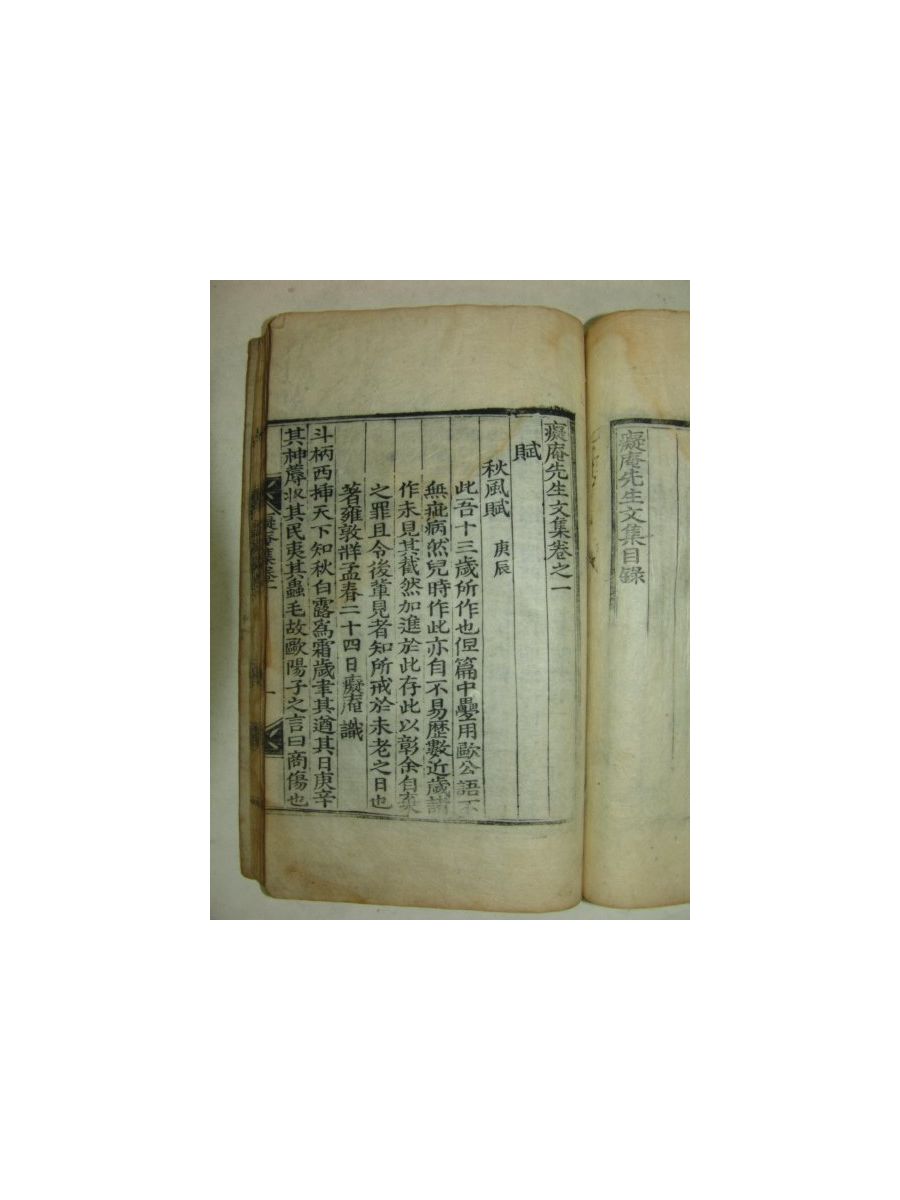 癡庵先生文集目錄
癡庵先生文集卷之一
賦
秋風賦 庚辰
此吾十三歲所作也但篇中疊用歐公語不
無疵病然兒時作此亦自不易歷數近歲諸
作未見其截然加進於此存此以彰余自棄
之罪且令後輩見者知所戒於未老之日也
著雍敦牂孟春二十四日癡庵識
斗柄西揷天下知秋白露爲霜歲聿其遒其日庚辛
其神蓐收其民夷其蟲毛故歐陽子之言曰商傷也
癡庵集卷一
一